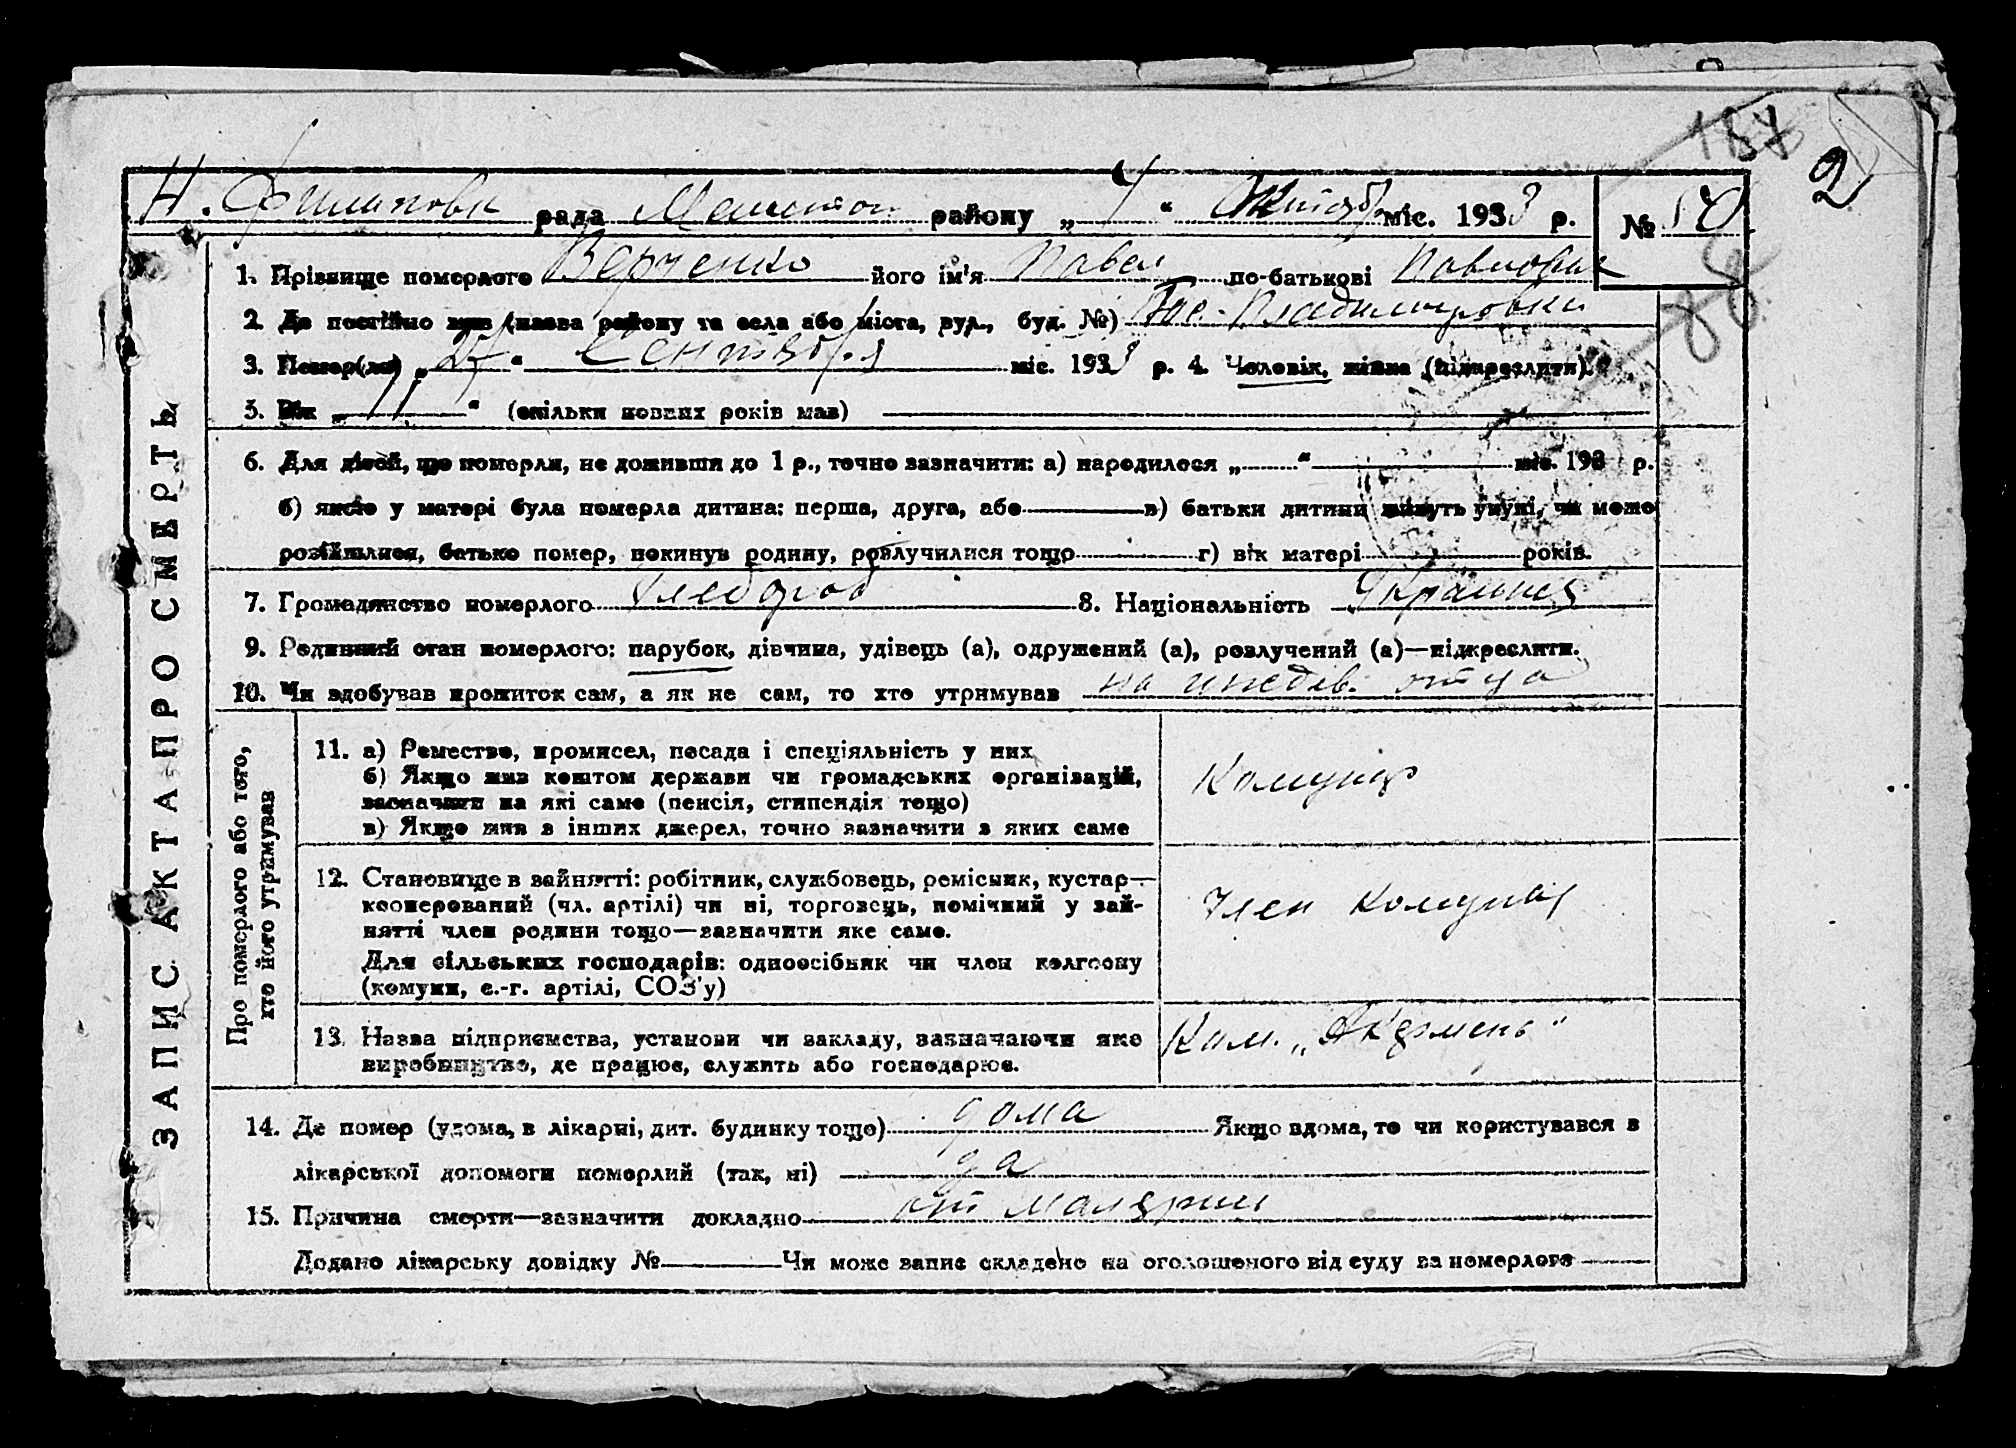 187
2
Н. Филиповк рада район у „ 1 “ Октябр міс. 1933 р. №
1. Прізвище померлого Верченко його ім'я Павел по-батькові Павлович
2. Де постійно жив (назва району та села або міста, вул., буд. №) Пос. Владимировка
88
3. Помер(ла) „ “ Сентября міс. 1933 р. 4. Чоловік, жінка (підкреслити).
5. Вік „ 11 “ (скільки повних років мав)
6. Для дітей, що померли, не доживши до 1 р., точно зазначити: а) народилося „ “ міс. 193 р.
б) якою у матері була померла дитина: перша, друга, або в) батьки дитини живуть укупі, чи може
розійшлися, батько помер, покинув родину, розлучилися тощо г) вік матері років.
7. Громадянство померлого хлебороб 8. Національність Украинец
9. Родинний стан померлого: парубок, дівчина, удівець (а), одружений (а), розлучений (а)—підкреслити.
10. Чи здобував прожиток сам, а як не сам, то хто утримував на иждів. отца
ЗАПИС АКТА ПРО СМЕРТЬ
Про померлого або того, хто його утримував
11. а) Ремество, промисел, посада і спеціяльність у них
б) Якщо жив коштом держави чи громадських організацій,
зазначити на які саме (пенсія, стипендія тощо)
в) Якщо жив з інших джерел, точно зазначити з яких саме
Комунар
12. Становище в занятті: робітник, службовець, ремісник, кустар—
кооперований (чл. артілі) чи ні, торговець, помічний у зай-
нятті член родини тощо—зазначити яке саме.
Для сільських господарів: одноосібник чи член колгоспу
(комуни, с.-г. артілі, СОЗ'у)
Член Комуны
13. Назва підприємства, установи чи закладу, зазначаючи яке
виробництво, де працює, служить або господарює.
Ком. „
14. Де помер (удома, в лікарні, дит. будинку тощо) дома Якщо вдома, то чи користувався з
лікарської допомоги померлий (так, ні) да
15. Причина смерти—зазначити докладно от малярии
Додано лікарську довідку № Чи може запис складено на оголошеного від суду за померлого